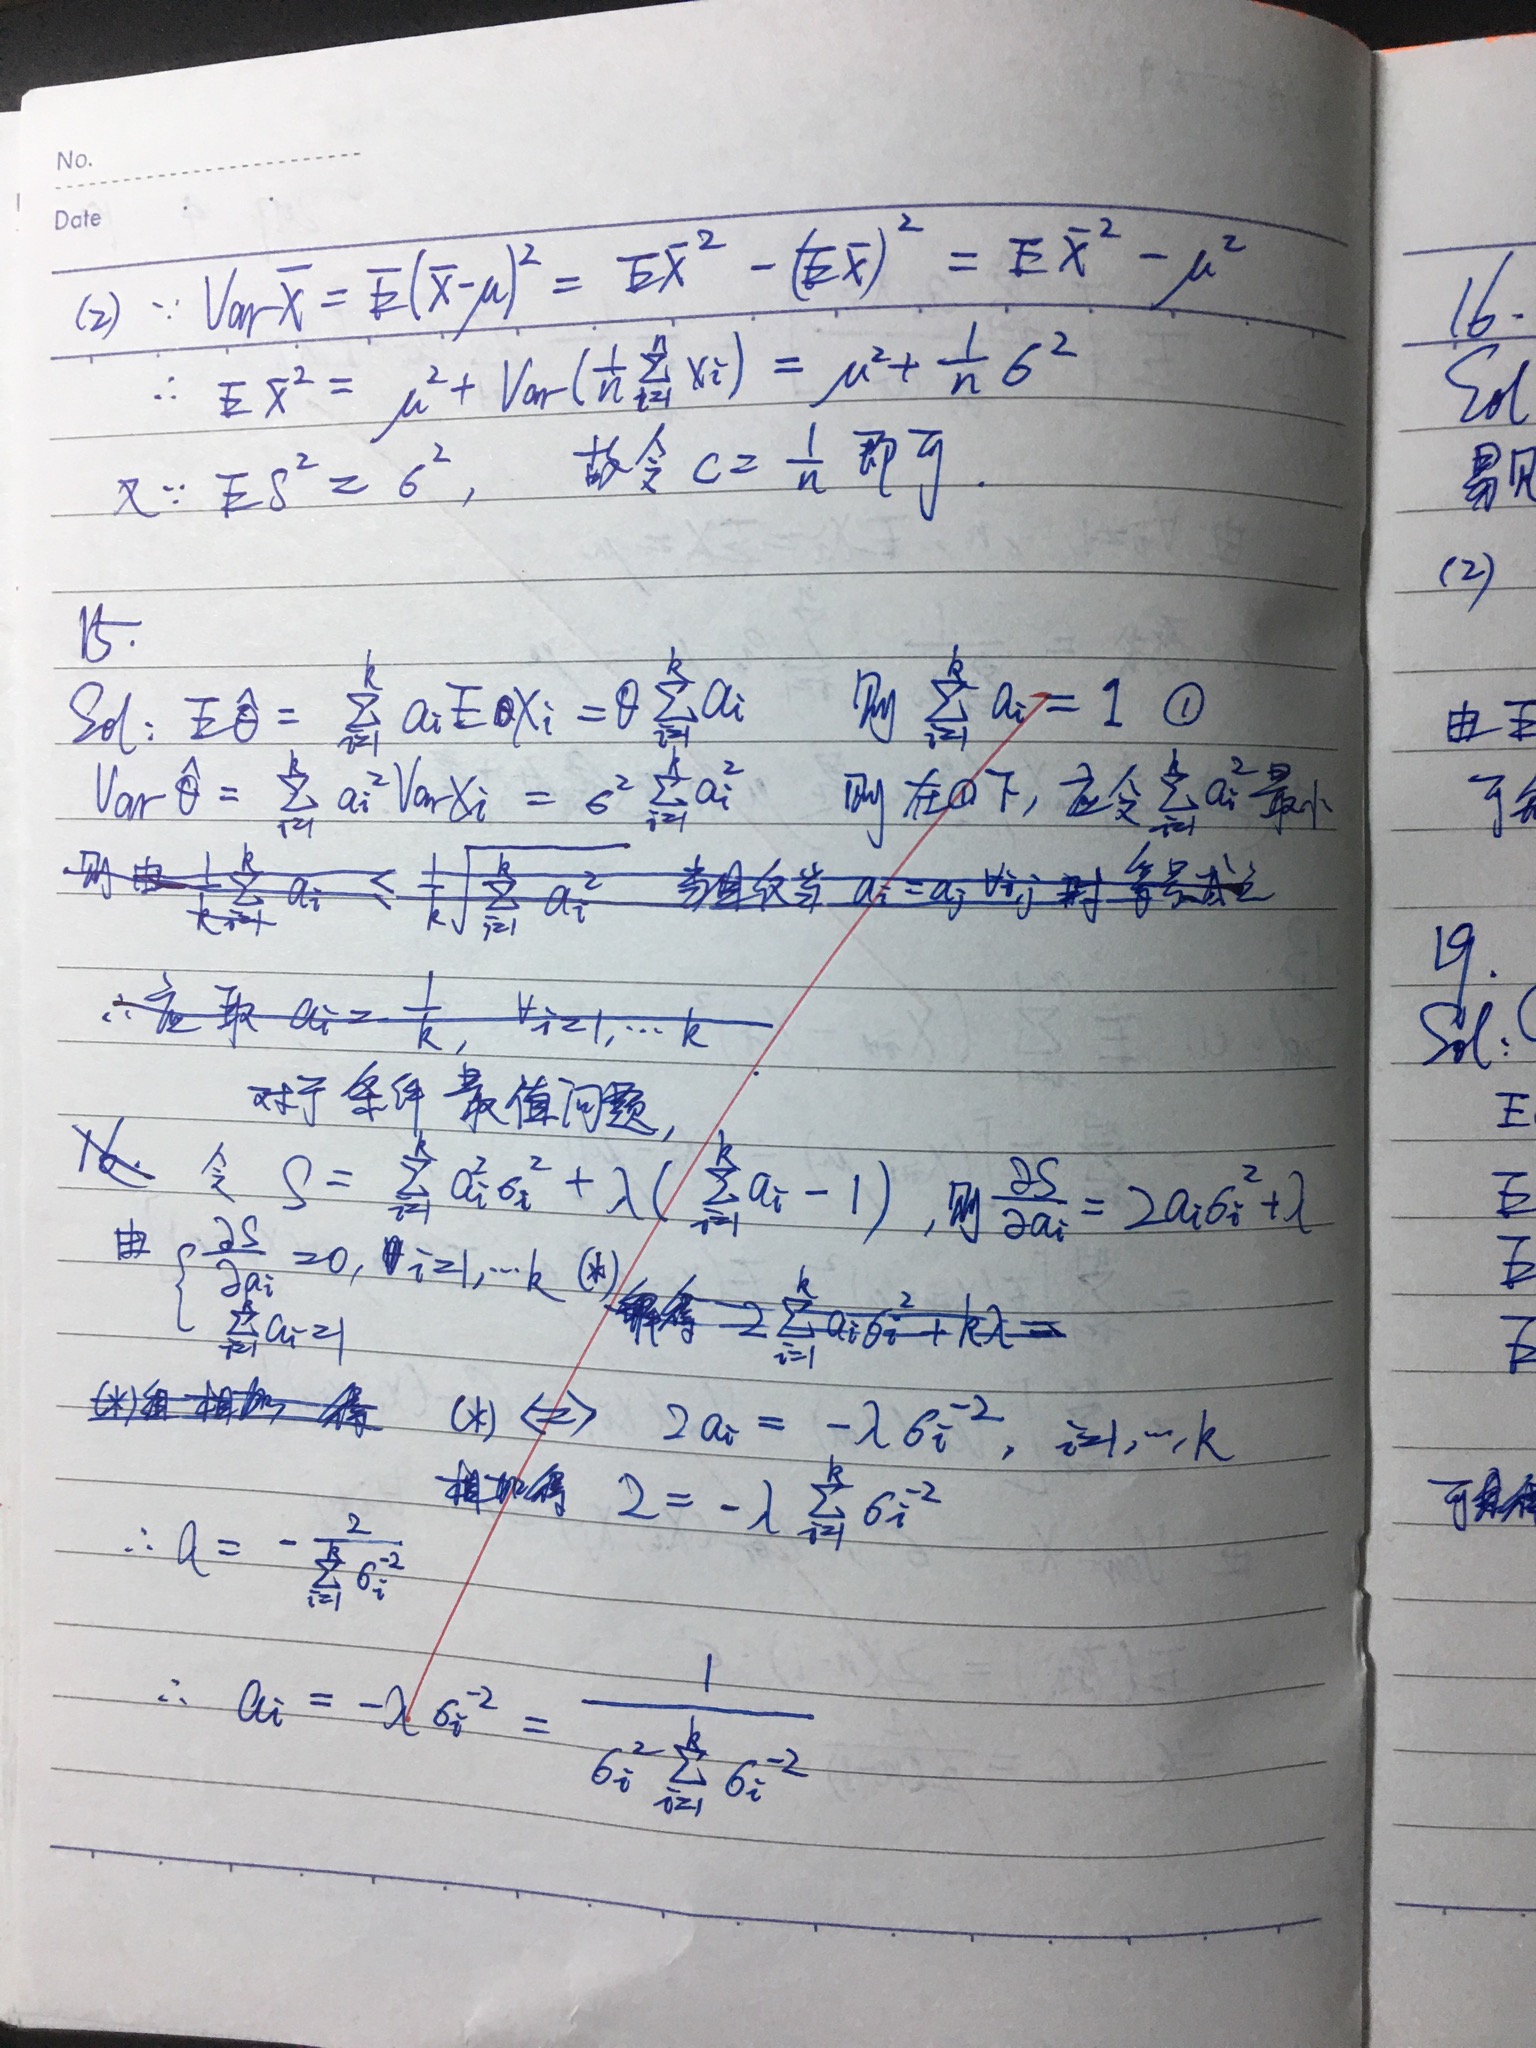 No.
Date
(2) ∵ Var X̄ = E(X̄-μ)² = EX̄² - (EX̄)² = EX̄² - μ²
∴ EX̄² = μ² + Var(1/n ∑_{i=1}^{n} Xi) = μ² + 1/n σ²
又∵ ES² = σ², 故令 C = 1/n 即可.
15.
Sol: Eθ̂ = ∑_{i=1}^{k} ai E Xi = θ ∑_{i=1}^{k} ai 则 ∑_{i=1}^{k} ai = 1 ①
Var θ̂ = ∑_{i=1}^{k} ai² Var Xi = σ² ∑_{i=1}^{k} ai² 则在①下, 应令 ∑_{i=1}^{k} ai² 最小
则由 1/k ∑_{i=1}^{k} ai ≤ 1/k √(∑_{i=1}^{k} ai²) 当且仅当 ai = aj ∀i,j 时等号成立
∴应取 ai = 1/k, ∀i=1,…k
对于条件最值问题,
16. 令 S = ∑_{i=1}^{k} ai²σi² + λ(∑_{i=1}^{k} ai - 1), 则 ∂S/∂ai = 2aiσi² + λ
由 { ∂S/∂ai = 0, i=1,…k (*)
∑_{i=1}^{k} ai = 1
解得 2∑_{i=1}^{k} aiσi² + kλ =
(*)组相加得 (*) <=> 2ai = -λσi⁻², i=1,…,k
相加得 2 = -λ ∑_{i=1}^{k} σi⁻²
∴ a = - 2/(∑_{i=1}^{k} σi⁻²)
∴ ai = -λσi⁻² = 1/(σi² ∑_{i=1}^{k} σi⁻²)
16.
Sol
易见
(2)
由 E
19.
Sol: (
E
E
E
E